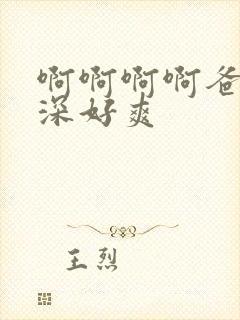 啊啊啊啊爸
深好爽
王烈